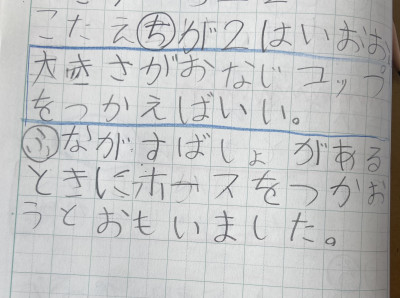 こたえちが2はいおお
大きさがおなじコップ
をつかえばいい。
ふながすばしょがある
ときにホースをつかお
うとおもいました。